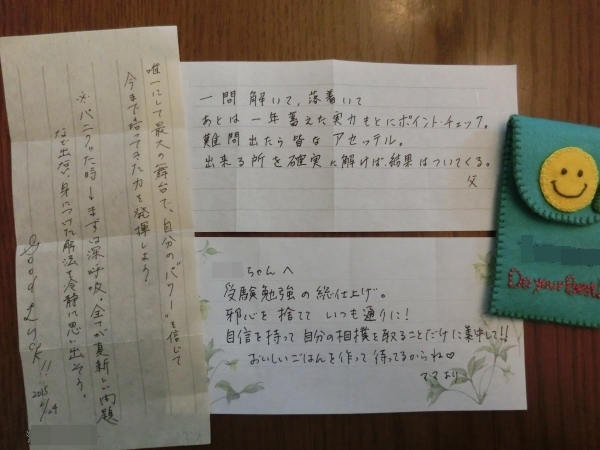 唯一にして最大の舞台で、自分の"パワー"を信じて
今まで培ってきた力を発揮しよう
※パニクった時→まずは深呼吸。全てが真新しい問題
など出ない、身につけた解法を冷静に思い出そう。
Good Luck!!
2015
2/24
一問解いて、落着いて
あとは一年蓄えた実力もとにポイント・チェック。
難問出たら皆なアセッテル。
出来る所を確実に解けば、結果はついてくる。
父
ちゃんへ
受験勉強の総仕上げ。
邪心を捨てていつも通りに!
自信を持って自分の相撲を取ることだけに集中して!!
おいしいごはんを作って待ってるからね♡
ママより
Do your Best